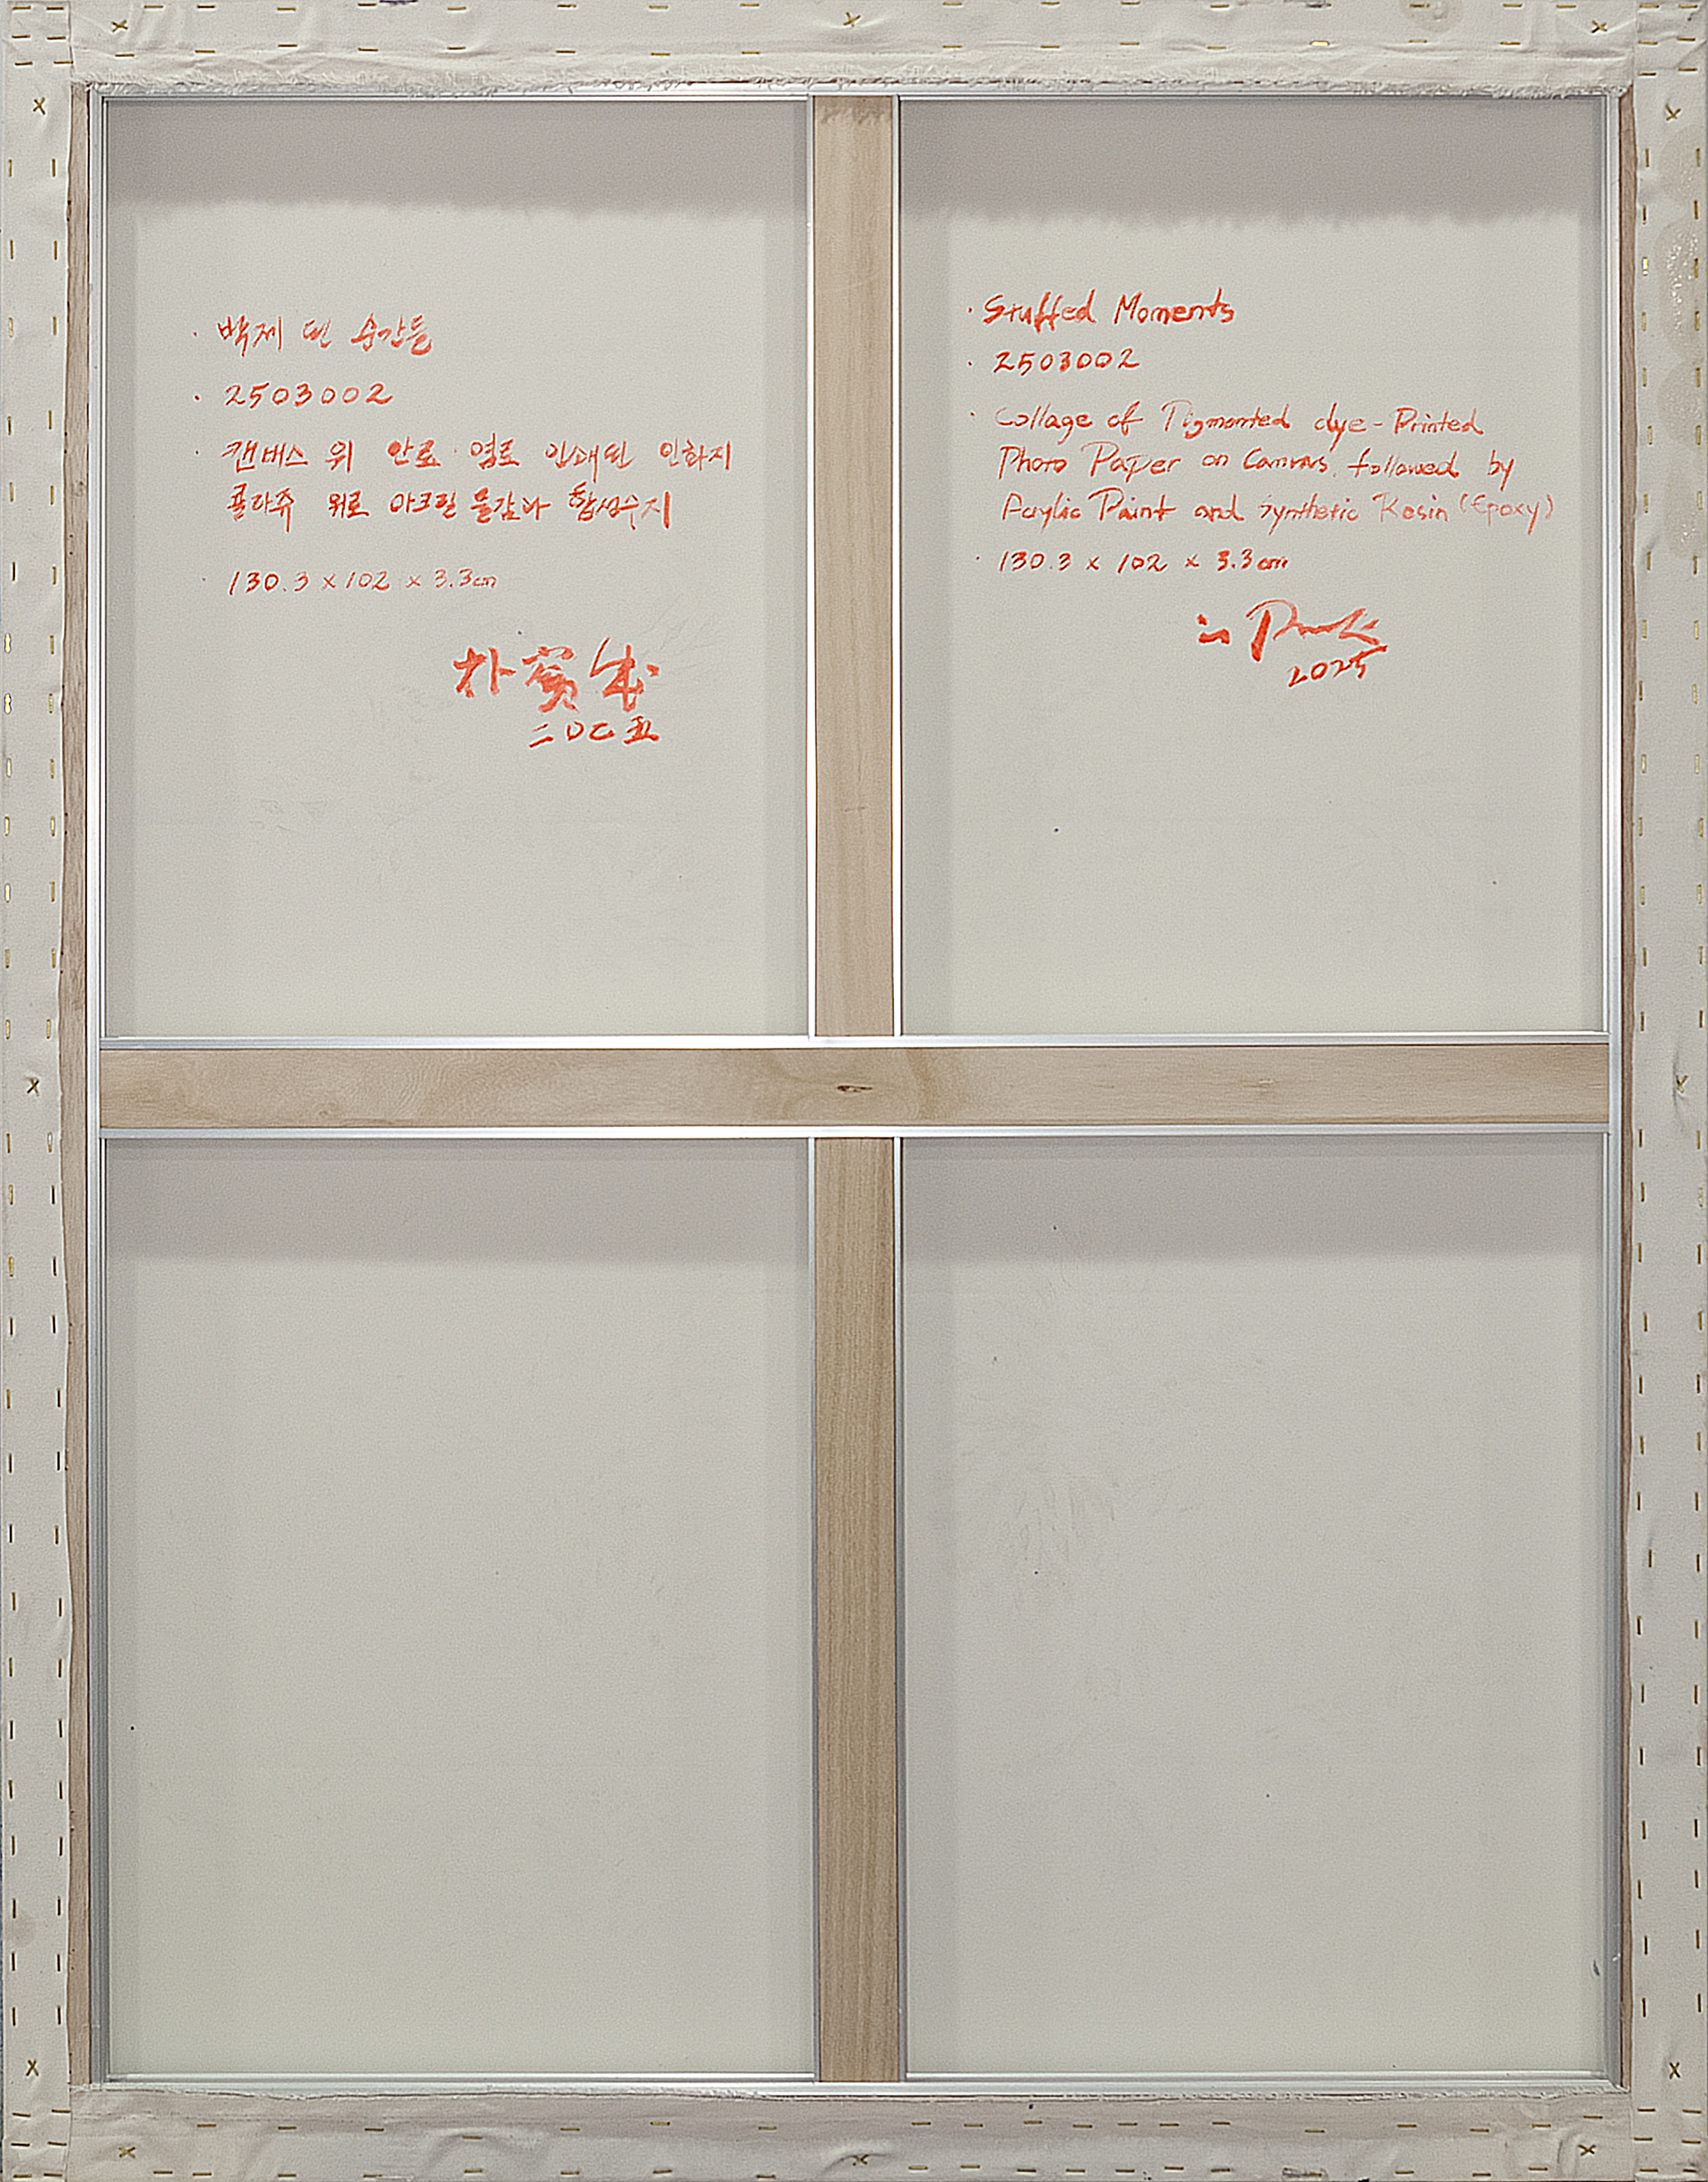 · 박제 된 순간들
· 2503002
· 캔버스 위 안료·염료 인쇄된 인화지
콜라쥬 위로 아크릴 물감과 합성수지
· 130.3 x 102 x 3.3cm
朴賓
二〇二五
· Stuffed Moments
· 2503002
· Collage of Pigmented dye-Printed
Photo Paper on Canvas, followed by
Acrylic Paint and Synthetic Resin (Epoxy)
· 130.3 x 102 x 3.3cm
Park
2025